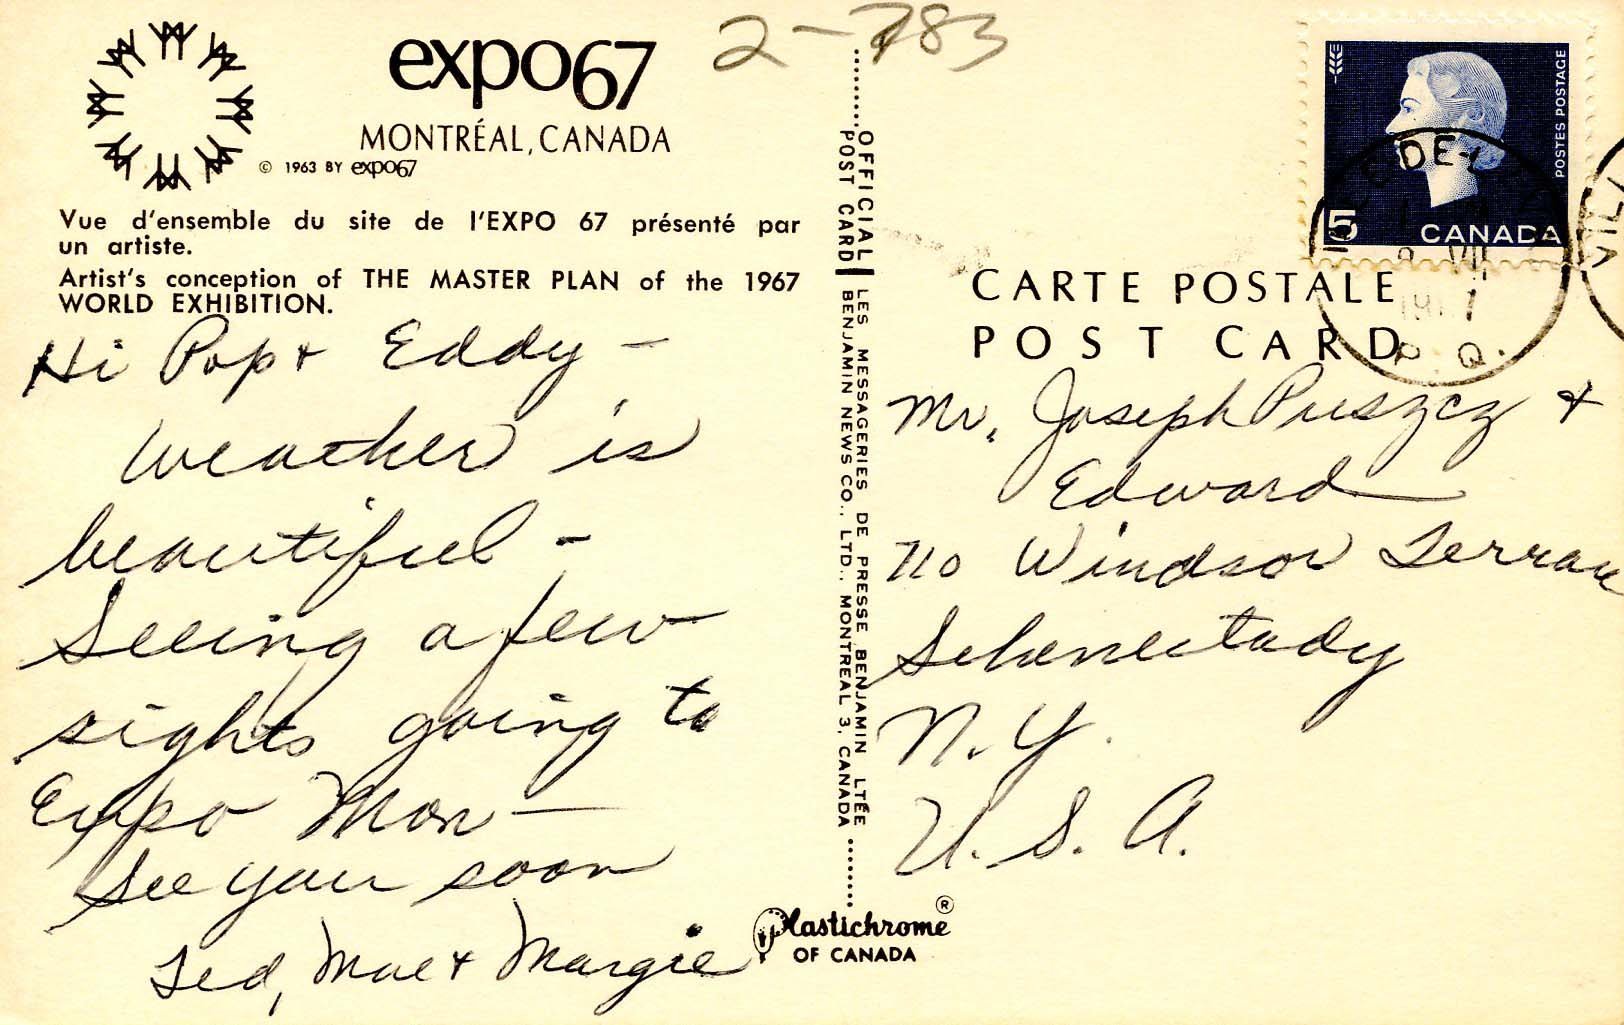 expo67
MONTRÉAL, CANADA
© 1963 BY expo67
Vue d'ensemble du site de l'EXPO 67 présenté par
un artiste.
Artist's conception of THE MASTER PLAN of the 1967
WORLD EXHIBITION.
Hi Pop + Eddy -
weather is
beautiful -
Seeing a few
sights going to
Expo Mon -
See you soon
Ted, Mae + Margie
2-783
OFFICIAL POST CARD
LES MESSAGERIES DE PRESSE BENJAMIN LTÉE
BENJAMIN NEWS CO., LTD., MONTREAL 3, CANADA
Plastichrome ®
OF CANADA
POSTES POSTAGE
5 CANADA
P. Q.
CARTE POSTALE
POST CARD
Mr. Joseph Puszcz +
Edward
Windsor Terrace
Schenectady
N. Y.
U. S. A.